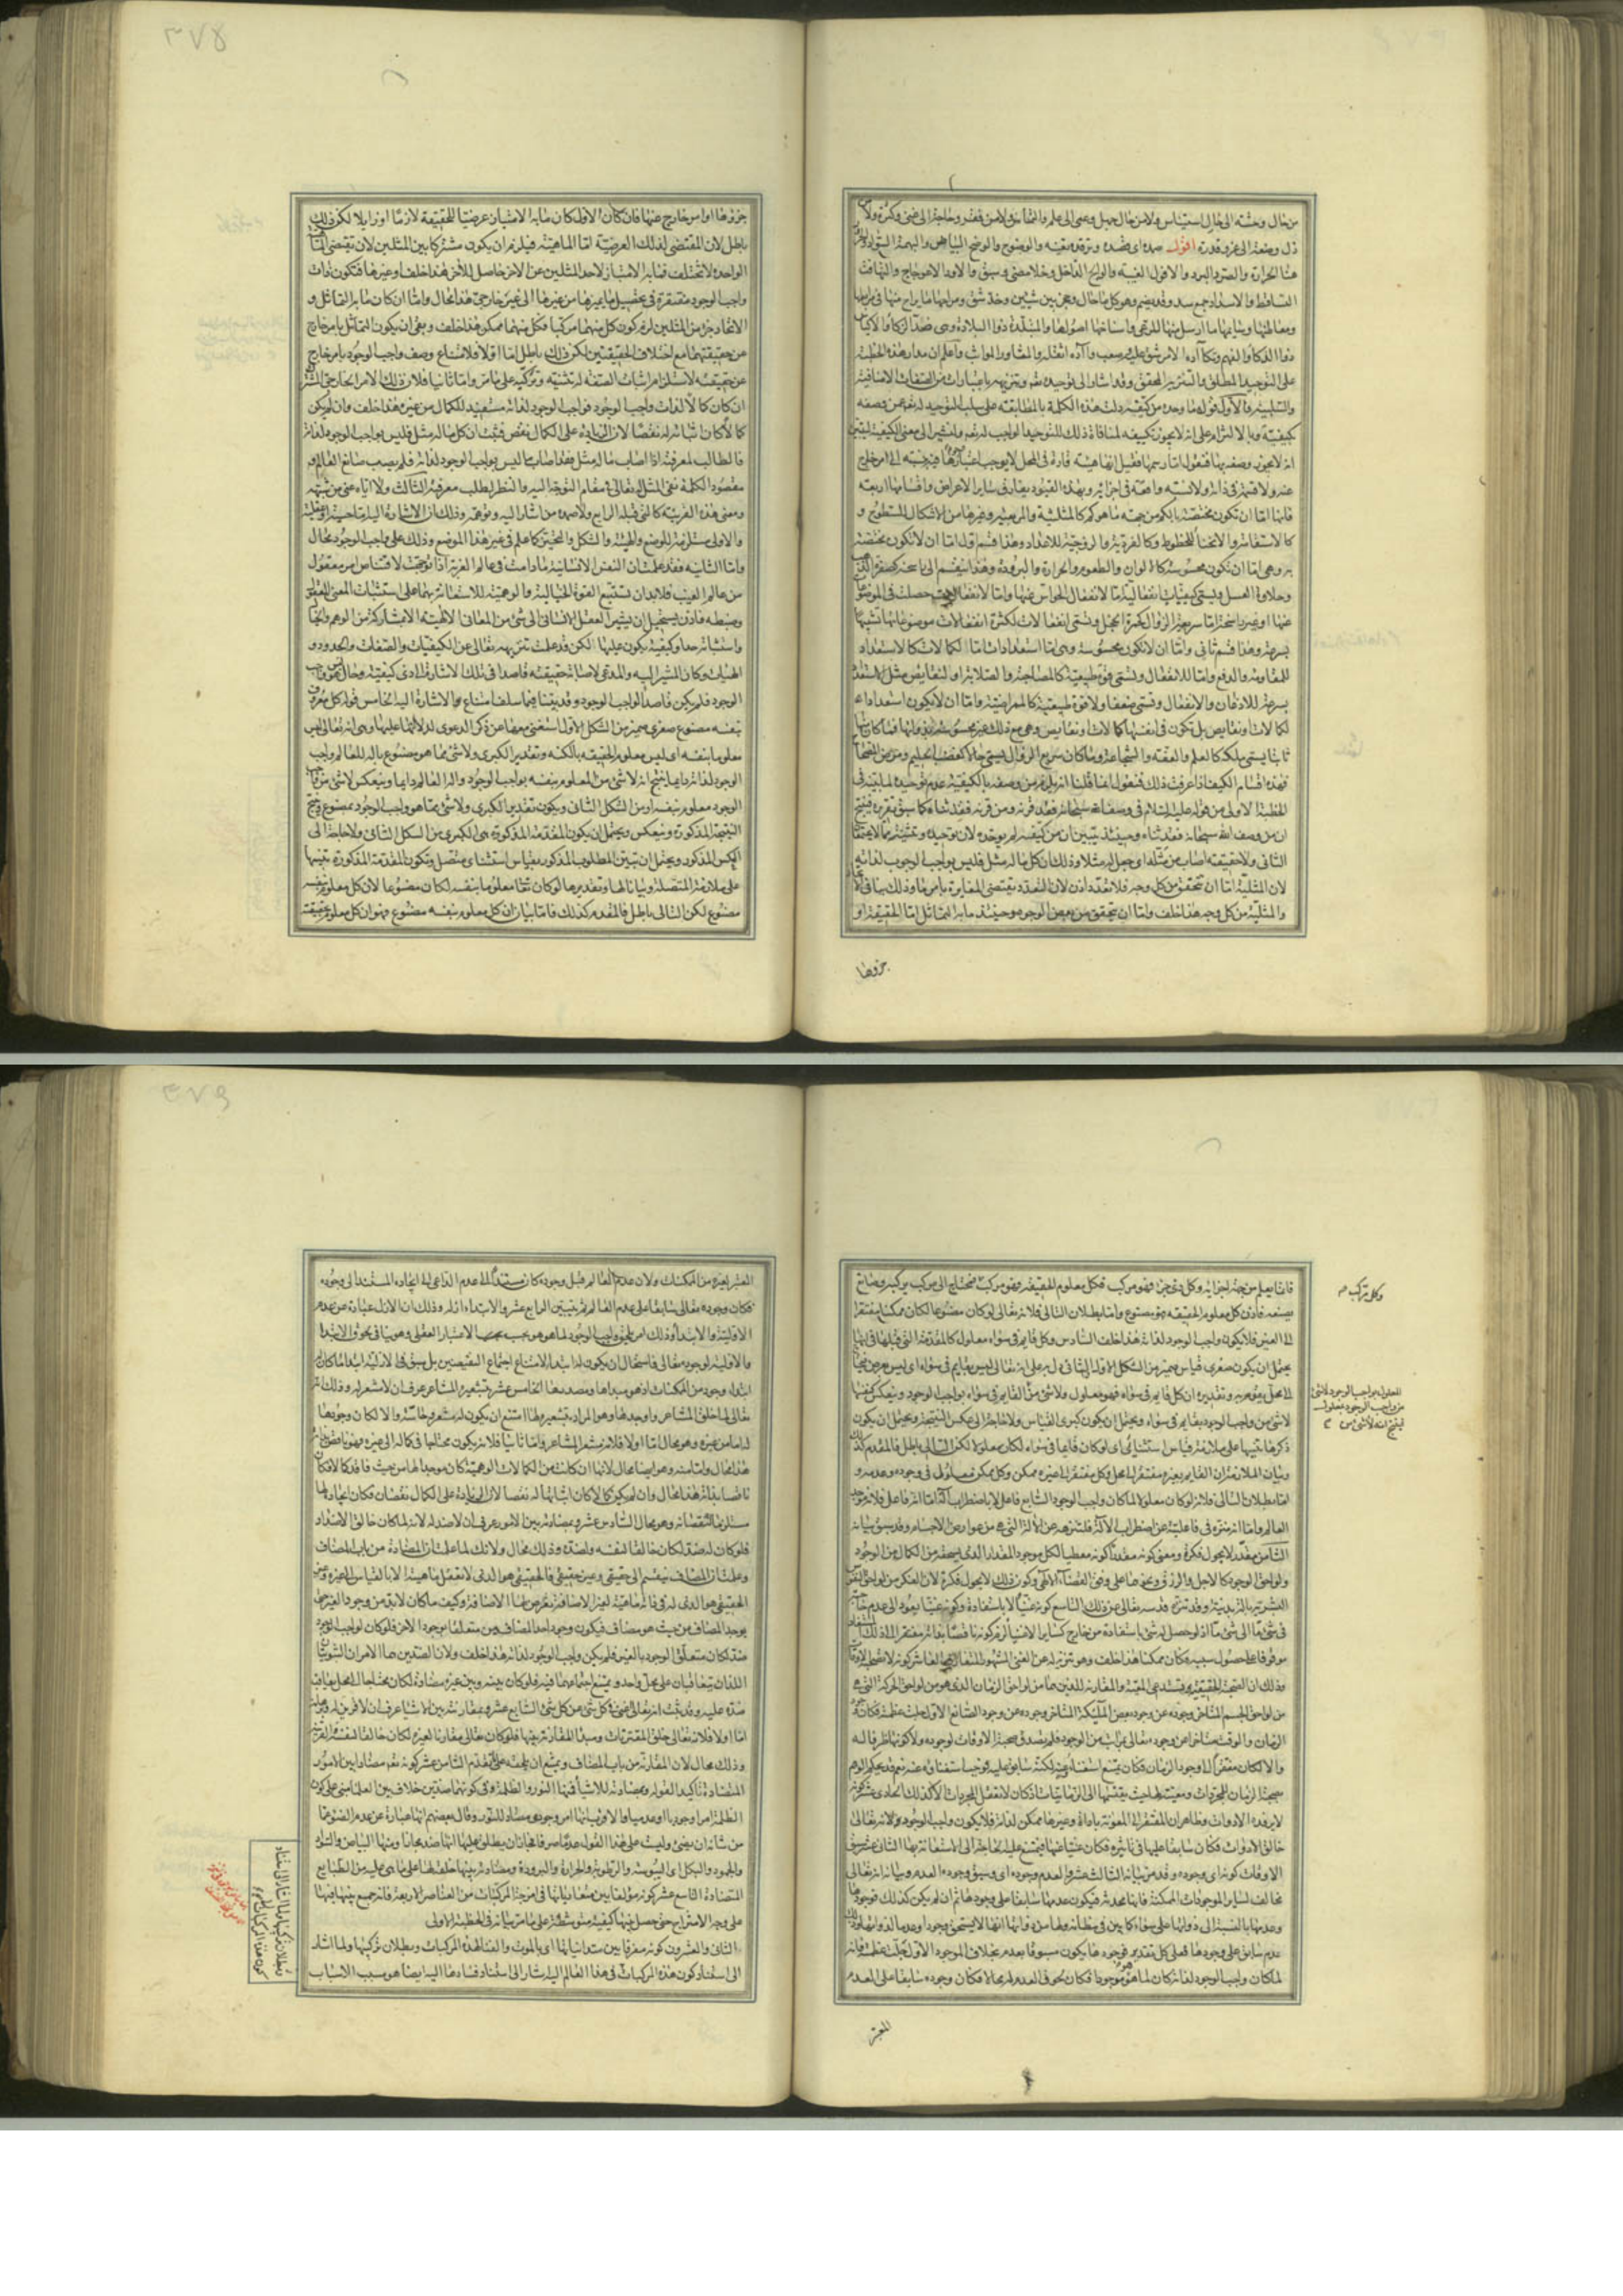 ٣٧٨
من حال وحشة الى حال استيناس ولا من حال جهل وعمى الى علم والتماس ولا من فقر وحاجة الى غنى وكثرة ولا من
ذل وضعة الى عز وقدرة اقول صمده اى قصده والوضوح والوضح البياض والبهمة السواد
هنا الحرارة والصرد البرد والافول الغيبة والوالج الداخل وخلا مضى وسبق والاود الاعوجاج والتهافت
التساقط والاسداد جمع سد وقد يضم وهو كل ما حال وحجز بين شيئين وخد شق ومراحها ما يراح منها فى مرابطها
ومعاطنها وسايمها ما ارسل منها للرعى واسناخها اصولها والمتبلدة ذوا البلادة وهى ضد الذكاء والاكياس
ذووا الذكاء والفهم وتكآءده الامر شق عليه وصعب وآده اثقله والمثاور المواثب واعلم ان مدار هذه الخطبة
على التوحيد المطلق والتنزيه المحقق وقد اشار الى توحيده تعالى وتنزيهه باعتبارات من الصفات الاضافية
والسلبية فالاول قوله ما وحده من كيفه دلت هذه الكلمة بالمطابقة على سلب التوحيد له تعالى عمن وصفه
بكيفية وبالالتزام على انه لا يجوز تكييفه لمنافاة ذلك للتوحيد الواجب له تعالى ولنشير الى معنى الكيفية ليتبين
انه لا يجوز وصفه بها فنقول اما رسمها فقيل انها هيئة قارة فى المحل لا يوجب اعتبار وجودها فيه نسبة الى امر خارج
عنه ولا قسمة فى ذاته ولا نسبة واقعة فى اجزائه وبهذه القيود يفارق ساير الاعراض واقسامها اربعة
فانها اما ان تكون مختصة بالكم من جهة ما هو كم كالمثلثية والمربعية وغيرها من الاشكال للسطوح و
كالاستقامة والانحناء للخطوط وكالفردية والزوجية للاعداد وهذا قسم اول اما ان لا تكون مختصة
به وهى اما ان تكون محسوسة كالالوان والطعوم والحرارة والبرودة وهذا ينقسم الى راسخة كصفرة الذهب
وحلاوة العسل ويسمى كيفيات انفعالية اما لانفعال الحواس عنها واما لانفعالات حصلت فى الموضوع
عنها او غير راسخة اما سريعة الزوال كحمرة الخجل وتسمى انفعالات لكثرة انفعالات موضوعاتها بسببها
بسرعة وهذا قسم ثانى واما ان لا تكون محسوسة وهى اما استعدادات اما لكمالات كالاستعداد
للمقاومة والدفع واما للانفعال ويسمى قوة طبيعية كالمصلحية والصلابة او لنقايص مثل الاستعداد
بسرعة للاذعان والانفعال وتسمى ضعفا ولا قوة طبيعية كالممراضية واما ان لا يكون استعدادا
لكمالات ونقايص بل تكون فى انفسها كمالات ونقايص وهى مع ذلك غير محسوسة بذواتها فما كان منها
ثابتا يسمى ملكة كالعلم والعفة والشجاعة وما كان سريع الزوال يسمى حالا كغضب الحليم ومرض الصحاح
فهذه اقسام الكيف اذا عرفت ذلك فنقول انما قلنا انه يلزم من وصفه بالكيفية عدم توحيده لما بينه فى
الخطبة الاولى من قوله عليه السلام فى وصف الله سبحانه فقد قرنه ومن قرنه فقد ثناه كما سبق تقريره فينتج
ان من وصف الله سبحانه فقد ثناه وحينئذ يتبين ان من كيفه لم يوحده لان توحيده وتثنيته مما لا يجتمعان
الثانى ولا حقيقته اصاب من مثله اى جعل له مثلا وذلك ان كل ما له مثل فليس بواجب الوجوب لذاته
لان المثلية اما ان تتحقق من كل وجه فلا تعدد اذن لان التعدد يقتضى المغايرة بامر ما وذلك ينافى الاتحاد
والمثلية من كل وجه هذا خلف واما ان يتحقق من بعض الوجوه وحينئذ ما به التماثل اما الحقيقة او
جزوها
جزوها او امر خارج عنها فان كان الاول كان ما به الامتياز عرضيا للحقيقة لازما او زايلا لكن ذلك
باطل لان المقتضى لذلك العرضى اما الماهية فيلزم ان يكون مشتركا بين المثلين لان مقتضى الماهية
الواحدة لا تختلف فما به الامتياز لاحد المثلين عن الاخر حاصل للاخر هذا خلف او غيرها فتكون ذات
واجب الوجود مفتقرة فى تحصيل ما يميزها من غيرها الى غير خارجى هذا محال واما ان كان ما به التماثل و
الاتحاد جزءا من المثلين لزم كون كل منهما مركبا فكل منهما ممكن هذا خلف وبقى ان يكون التماثل بامر خارج
عن حقيقتهما مع اختلاف الحقيقتين لكن ذلك باطل اما اولا فلامتناع وصف واجب الوجود بامر خارج
عن حقيقته لاستلزام اثبات الصفة له تثنيته وتركيبه على ما مر واما ثانيا فلان ذلك الامر الخارجى المشترك
ان كان كمالا لذات واجب الوجود فواجب الوجود لذاته مستفيد للكمال من غيره هذا خلف وان لم يكن
كمالا كان اثباته له نقصا لان الزيادة على الكمال نقص فثبت ان كل ما له مثل فليس بواجب الوجود لذاته
فالطالب لمعرفته اذا اصاب ما له مثل فقد اصاب ما ليس بواجب الوجود لذاته فلم يصب صانع العالم و
مقصود الكلمة نفى المثل له تعالى فى مقام التوجه اليه والنظر لطلب معرفته الثالث ولا اياه عنى من شبهه
ومعنى هذه القرينة كالتى قبله الرابع ولا صمده من اشار اليه وتوهمه وذلك ان الاشارة اليه اما حسية او عقلية
والاولى مستلزمة للوضع والهيئة والشكل والتحيز كما علم فى غير هذا الموضع وذلك على واجب الوجود محال
واما الثانية فقد علمت ان النفس الانسانية ما دامت فى عالم الغربة اذا توجهت لاقتناص امر معقول
من عالم الغيب فلا بد ان تستتبع القوة الخيالية والوهمية للاستعانة بهما على استثبات المعنى المعقول
وضبطه فاذن يستحيل ان يشير العقل الانسانى الى شئ من المعانى الالهية الا بمشاركة من الوهم والخيال
واستثباته حدا وكيفية يكون عليها لكن قد علمت تنزيهه تعالى عن الكيفيات والصفات والحدود و
الهيئات وكان المشير اليه والمدعى لاصابة حقيقته قاصدا فى تلك الاشارة الى ذى كيفية وحال ليس هو واجب
الوجود فلم يكن قاصدا لواجب الوجود وقد بينا فيما سلف امتناع الاشارة اليه الخامس قوله كل معروف
بنفسه مصنوع صغرى ضمير من الشكل الاول استغنى معها عن ذكر الدعوى لدلالتها عليها وهى انه تعالى ليس
معلوما بنفسه اى ليس معلوم الحقيقة بالكنه وتقدير الكبرى ولا شئ مما هو مصنوع باله للعالم واجب
الوجود لذاته دايما ينتج انه لا شئ من المعلوم بنفسه بواجب الوجود واله العالم دايما وينعكس لا شئ من واجب
الوجود معلوم بنفسه او من الشكل الثانى ويكون تقدير الكبرى ولا شئ مما هو واجب الوجود بمصنوع وينتج
النتيجة المذكورة وينعكس ويحتمل ان يكون المقدمة المذكورة هى الكبرى من الشكل الثانى ولا حاجة الى
العكس المذكور ويحتمل ان تبين المطلوب المذكور بقياس استثنائى متصل وتكون المقدمة المذكورة تنبيها
على ملازمة المتصلة وبيانا لها وتقديرها لو كان تعالى معلوما بنفسه لكان مصنوعا لان كل معلوم بنفسه
مصنوع لكن التالى باطل فالمقدم كذلك فاما بيان ان كل معلوم بنفسه مصنوع فهو ان كل معلوم بحقيقته
٣٧٩
فانما يعلم من جهة اجزائه وكل ذى جزء فهو مركب فكل معلوم الحقيقة فهو مركب فمحتاج الى مركب يركبه وصانع
يصنعه فاذن كل معلوم الحقيقة فهو مصنوع واما بطلان التالى فلانه تعالى لو كان مصنوعا لكان ممكنا مفتقرا
الى الغير فلا يكون واجب الوجود لذاته هذا خلف السادس وكل قايم فى سواه معلول كالمقدمة التى قبلها فى انها
يحتمل ان يكون صغرى قياس ضمير من الشكل الاول او الثانى دل به على انه تعالى ليس بقايم فى سواه اى ليس بعرض يحتاج
الى محل يقوم به وتقديره ان كل قايم فى سواه فهو معلول ولا شئ من القايم فى سواه بواجب الوجود وينعكس كنفسها
لا شئ من واجب الوجود بقايم فى سواه ويحتمل ان يكون كبرى القياس ولا حاجة الى عكس النتيجة ويحتمل ان يكون
ذكرها تنبيها على ملازمة قياس استثنائى اى لو كان قايما فى سواه لكان معلولا لكن التالى باطل فالمقدم كذلك
وبيان الملازمة ان القايم بغيره مفتقر الى محل وكل مفتقر الى غيره ممكن وكل ممكن معلول فى وجوده وعدمه و
اما بطلان التالى فلانه لو كان معلولا لما كان واجب الوجود السابع فاعل لا باضطراب آلة اما انه فاعل فلانه موجد
العالم واما انه منزه فى فاعليته عن اضطراب الالة فلتنزهه عن الالة التى هى من عوارض الاجسام وقد سبق بيانه
الثامن مقدر لا بجول فكرة ومعنى كونه مقدرا كونه معطيا لكل موجود المقدار الذى يستحقه من الكمال من الوجود
ولواحق الوجود كالاجل والرزق ونحوهما على وفق القضاء الالهى وكون ذلك لا بجول فكرة لان الفكر من لواحق النفوس
البشرية بالة بدنية وقد تنزه قدسه تعالى عن ذلك التاسع كونه غنيا لا باستفادة وكونه غنيا يعود الى عدم حاجته
فى شئ ما الى شئ ما اذ لو حصل له شئ باستفادة من خارج كساير الاغنياء لزم كونه ناقصا بذاته مفتقرا الى ذلك المستفاد
موقوفا على حصول سببه فكان ممكنا هذا خلف وهو تنزيه له عن الغنى المشهور المتعارف العاشر كونه لا تصحبه الاوقات
وذلك ان الصحبة الحقيقية تستدعى المعية والمقارنة اللذين هما من لواحق الزمان الذى هو من لواحق الحركة التى هى
من لواحق الجسم المتاخر وجوده عن وجود بعض الملائكة المتاخر وجوده عن وجود الصانع الاول جلت عظمته فكان وجود
الزمان والوقت متاخرا عن وجوده تعالى بمراتب من الوجود فلم يصدق صحبة الاوقات لوجوده ولا كونها ظرفا له
والا لكان مفتقرا الى وجود الزمان فكان يمتنع استغناؤه عنه لكنه سابق عليه فوجب استغناؤه عنه نعم قد يحكم الوهم
بصحبة الزمان للمجردات ومعيته لها حيث يقيسها الى الزمانيات اذ كان لا يعقل المجردات الا كذلك الحادى عشر كونه
لا ترفده الادوات وظاهر ان المفتقر الى المعونة باداة وغيرها ممكن لذاته فلا يكون واجب الوجود ولانه تعالى
خالق الادوات فكان سابقا عليها فى تاثيره فكان غنيا عنها فيمتنع عليه الحاجة الى الاستعانة بها الثانى عشر سبق
الاوقات كونه اى وجوده وقد مر بيانه الثالث عشر والعدم وجوده اى وسبق وجوده العدم وبيانه انه تعالى
مخالف لساير الموجودات الممكنة فانها محدثة فيكون عدمها سابقا على وجودها ثم ان لم يكن كذلك فوجودها
وعدمها بالنسبة الى ذواتها على سواء كما بين فى مظانه ولها من ذواتها انها لا يستحق وجودا وعدما لذواتها وذلك
عدم سابق على وجودها فعلى كل تقدير فوجودها يكون مسبوقا بعدم بخلاف الموجود الاول جلت عظمته فانه
لما كان واجب الوجود لذاته كان لما هو هو موجودا فكان لحوق العدم له محالا فكان وجوده سابقا على العدم
وكل مركب
المعلول بواجب الوجود لا شئ
من واجب الوجود بمعلول
لينتج انه لا شئ من
المعتبر
المعتبر لغيره من الممكنات ولان عدم العالم قبل وجوده كان مستندا الى عدم الداعى الى ايجاده المستند الى وجوده
فكان وجوده تعالى سابقا على عدم العالم ثم تبيين الرابع عشر والابتداء ازله وذلك ان الازل عبارة عن عدم
الاولية والابتداء وذلك امر يلحق واجب الوجود لما هو هو بحسب الاعتبار العقلى وهو ينافى لحوق الابتداء
والاولية لوجوده تعالى فاستحال ان يكون له ابتداء لامتناع اجتماع النقيضين بل سبق فى الازلية ابتداء ما كان له
ابتداء وجود من الممكنات اذ هو مبداها ومصدرها الخامس عشر بتشعيره المشاعر عرف ان لا مشعر له وذلك انه
تعالى لما خلق المشاعر واوجدها وهو المراد بتشعيره لها امتنع ان يكون له مشعر وحاسة والا لكان وجودها
له اما من غيره وهو محال اما اولا فلانه مشعر المشاعر واما ثانيا فلانه يكون محتاجا فى كماله الى غيره فهو ناقص بذاته
هذا محال واما منه وهو ايضا محال لانها ان كانت من الكمالات الوهمية كان موجدا لها من حيث فاقد كمالا فكان
ناقصا بذاته هذا محال وان لم يكن كمالا كان اثباتها له نقصا لان الزيادة على الكمال نقصان فكان ايجاده لها
مستلزما لنقصانه وهو محال السادس عشر وبمضادته بين الامور عرف ان لا ضد له لانه لما كان خالق الاضداد
فلو كان له ضد لكان خالقا لنفسه ولضده وذلك محال ولانك لما علمت ان المضادة من باب المضاف
وعلمت ان المضاف ينقسم الى حقيقى وغير حقيقى فالحقيقى هو الذى لا تعقل ماهيته الا بالقياس الى غيره وغير
الحقيقى هو الذى له فى ذاته ماهية لغير الاضافة تعرض لها الاضافة وكيف ما كان لابد من وجود الغير حتى
يوجد المضاف من حيث هو مضاف فيكون وجود احد المضافين متعلقا بوجود الاخر فلو كان لواجب الوجود
ضد لكان متعلق الوجود بالغير فلم يكن واجب الوجود لذاته هذا خلف ولان الضدين هما الامران الثبوتيان
اللذان يتعاقبان على محل واحد ويمتنع اجتماعهما فيه فلو كان بينه وبين غيره مضادة لكان محتاجا الى محل يعاقب
ضده عليه وقد ثبت انه تعالى غنى عن كل شئ السابع عشر وبمقارنته بين الاشياء عرف ان لا قرين له وبرهانه
اما اولا فلانه تعالى خالق المقترنات ومبدا المقارنة بينها فلو كان تعالى مقارنا لغيره لكان خالقا لنفسه ولقرينه
وذلك محال لان المقارنة من باب المضاف ويمتنع ان يلحقه على ما تقدم الثامن عشر كونه تعالى مضادا بين الامور
المتضادة تاكيد القول ومضادته للاشياء فمنها النور والظلمة وفى كونهما ضدين خلاف بين العلماء مبنى على كون
الظلمة امرا وجوديا او عدميا والاقرب انها امر وجودى مضاد للنور وقال بعضهم انها عبارة عن عدم الضوء عما
من شانه ان يضئ وليست على هذا القول عدما صرفا فجاز ان يطلق عليها انها ضد مجازا ومنها البياض والسواد
والجمود والبلل اى اليبوسة والرطوبة والحرارة والبرودة ومضادته بينها خلقه لها على ما هى عليه من الطبايع
المتضادة التاسع عشر كونه مؤلفا بين متعادياتها فى امزجة المركبات من العناصر الاربعة فانه جمع بينها فيها
على وجه الامتزاج حتى حصل بينها كيفية متوسطة على ما مر بيانه فى الخطبة الاولى
الثانى والعشرون كونه مفرقا بين متدانياتها اى بالموت والفناء لهذه المركبات وبطلان تركيبها ولما اشار
الى استناد كون هذه المركبات فى هذا العالم اليه اشار الى استناد فسادها اليه ايضا هو مسبب الاسباب
وبطلان تركيبها ولما اشار الى استناد
كون هذه المركبات